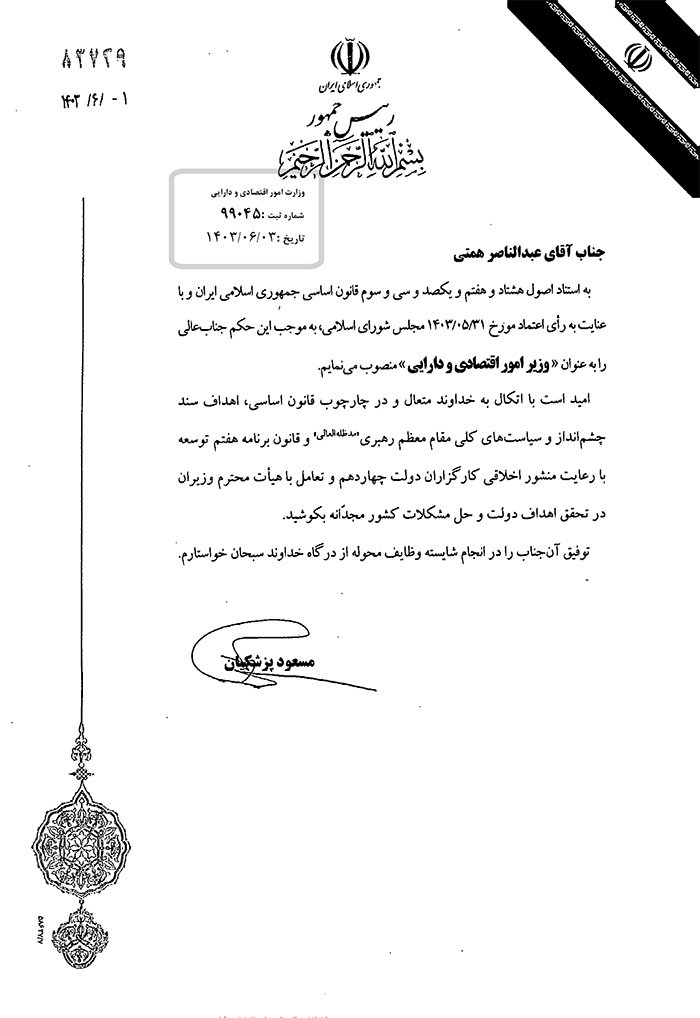 ۸۳۷۲۹
۱۴۰۳ /۶/ -۱
جمهوری اسلامی ایران
رییس جمهور
بسم الله الرحمن الرحیم
وزارت امور اقتصادی و دارایی
شماره ثبت :۹۹۰۴۵
تاریخ :۱۴۰۳/۰۶/۰۳
جناب آقای عبدالناصر همتی
به استناد اصول هشتاد و هفتم و یکصد و سی و سوم قانون اساسی جمهوری اسلامی ایران و با
عنایت به رأی اعتماد مورخ ۱۴۰۳/۰۵/۳۱ مجلس شورای اسلامی، به موجب این حکم جناب‌عالی
را به عنوان «وزیر امور اقتصادی و دارایی» منصوب می‌نمایم.
امید است با اتکال به خداوند متعال و در چارچوب قانون اساسی، اهداف سند
چشم‌انداز و سیاست‌های کلی مقام معظم رهبری"مدظله‌العالی" و قانون برنامه هفتم توسعه
با رعایت منشور اخلاقی کارگزاران دولت چهاردهم و تعامل با هیأت محترم وزیران
در تحقق اهداف دولت و حل مشکلات کشور مجدّانه بکوشید.
توفیق آن‌جناب را در انجام شایسته وظایف محوله از درگاه خداوند سبحان خواستارم.
مسعود پزشکیان